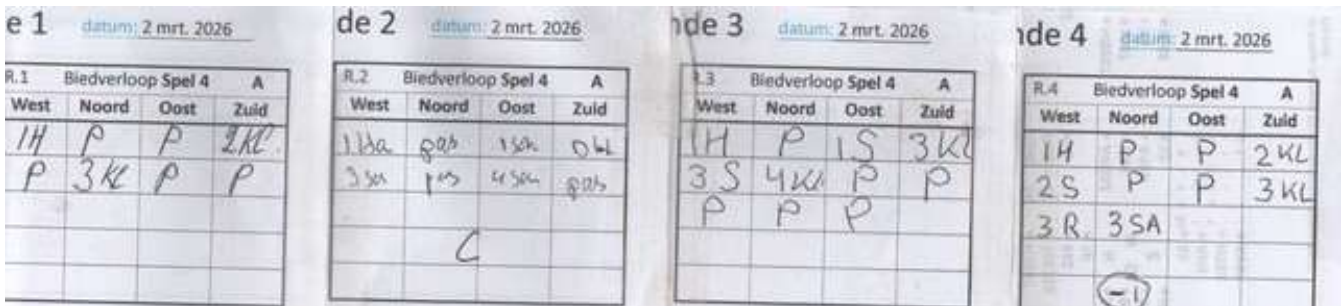 e 1 datum: 2 mrt. 2026
R.1 Biedverloop Spel 4 A
West Noord Oost Zuid
1H P P 2KL.
P 3KL P P
de 2 datum: 2 mrt. 2026
R.2 Biedverloop Spel 4 A
West Noord Oost Zuid
pas Dbl
pas pas
C
nde 3 datum: 2 mrt. 2026
R.3 Biedverloop Spel 4 A
West Noord Oost Zuid
1H P 1S 3KL
3S 4KL P P
P P P
nde 4 datum: 2 mrt. 2026
R.4 Biedverloop Spel 4 A
West Noord Oost Zuid
1H P P 2KL
2S P P 3KL
3R. 3SA
-1